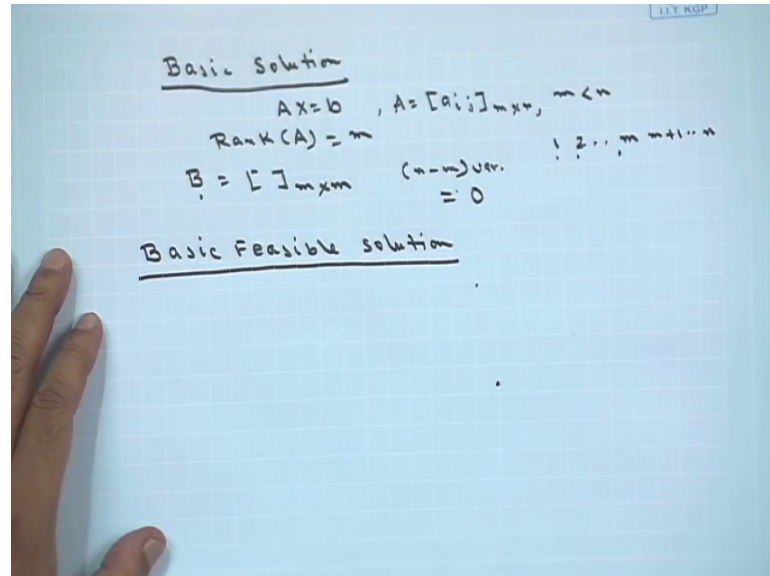 I.I.T. KGP
Basic Solution
AX=b , A=[aij]m×n, m<n
Rank(A) = m
1 2 .. m m+1 .. n
B = [ ]m×m (n-m) var.
= 0
Basic Feasible solution